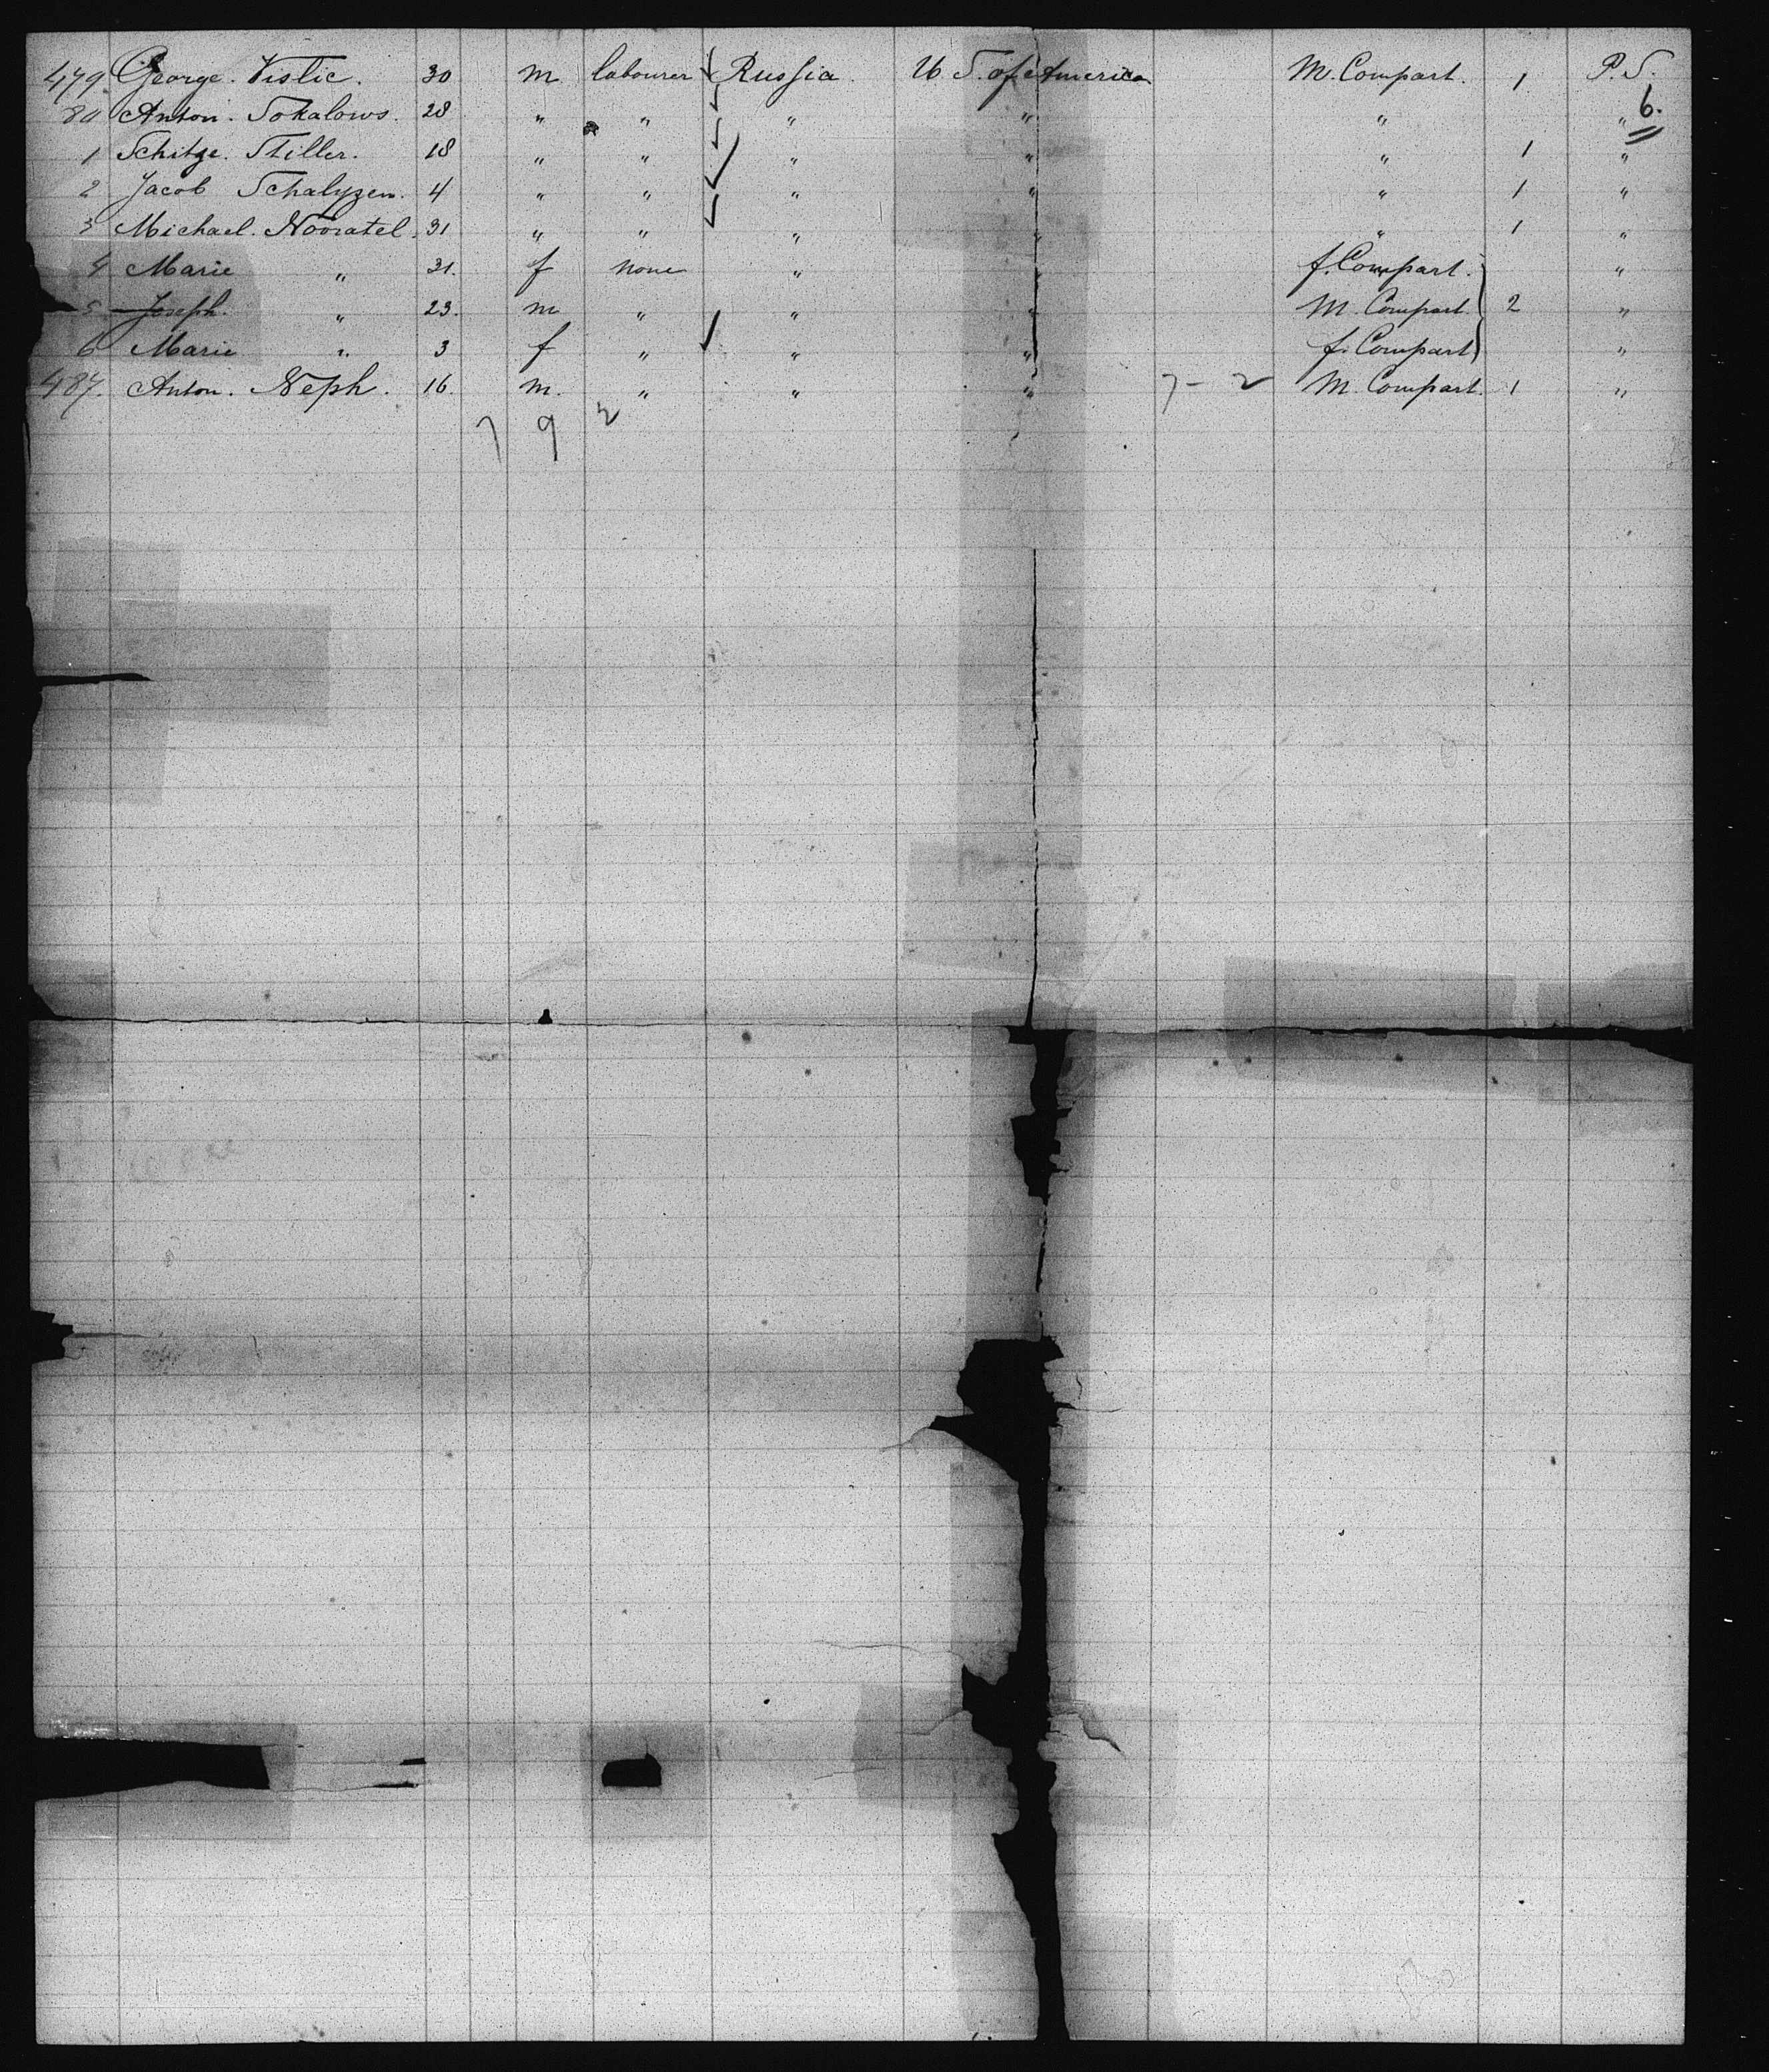 479. George. Vislic. 30 m labourer Russia. U S. of America M. Compart. 1 P. S.
80 Anton. Sokalows. 28 " " " " " " 6.
1 Schitze. Stiller. 18 " " " " " 1 "
2 Jacob Schalyzen. 4 " " " " " 1 "
3 Michael. Nooratel. 31 " " " " " 1 "
4 Marie " 31. f none " " f. Compart. "
5 Joseph. " 23. m " " " M. Compart. 2 "
6 Marie " 3 f " " " f. Compart "
487. Anton. Neph. 16. m. " " " 7 - 2 M. Compart. 1 "
7 9 2